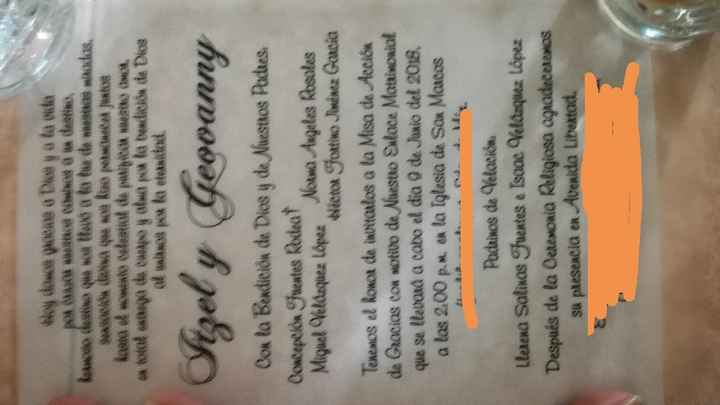 Hoy damos gracias a Dios y a la vida
por cruzar nuestros caminos a un destino,
hermoso destino que nos llevó a la luz de nuestras miradas,
sensación divina que nos hizo permanecer juntos
hasta el momento celestial de purificar nuestro amor,
en total entrega de cuerpo y alma por la bendición de Dios
al unirnos por la eternidad.
y Geovanny
Con la Bendición de Dios y de Nuestros Padres.
Concepción Fuentes Norma Angeles Rosales
Miguel Velázquez López Héctor Fortino Jiménez García
Tenemos el honor de invitarlos a la Misa de Acción
de Gracias con motivo de Nuestro Enlace Matrimonial
que se llevará a cabo el día 9 de Junio del 2018,
a las 2.00 p.m. en la Iglesia de San Marcos
Padrinos de Velación.
Llerena Salinas Fuentes e Isaac Velázquez López
Después de la Ceremonia Religiosa agradeceremos
su presencia en Avenida Libertad,